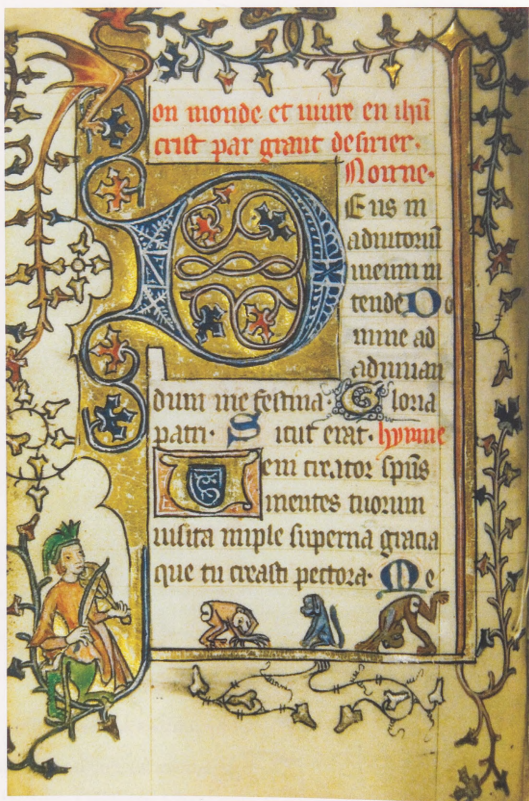 on monde et viure en ihū
crist par grant desirier.
Nonne.
Eus in
adiutoriū
meum in
tende Do
mine ad
adiuuan
dum me festina. Gloria
patri. Sicut erat. hymne
Ueni creator spūs
mentes tuorum
uisita imple superna gracia
que tu creasti pectora. Me